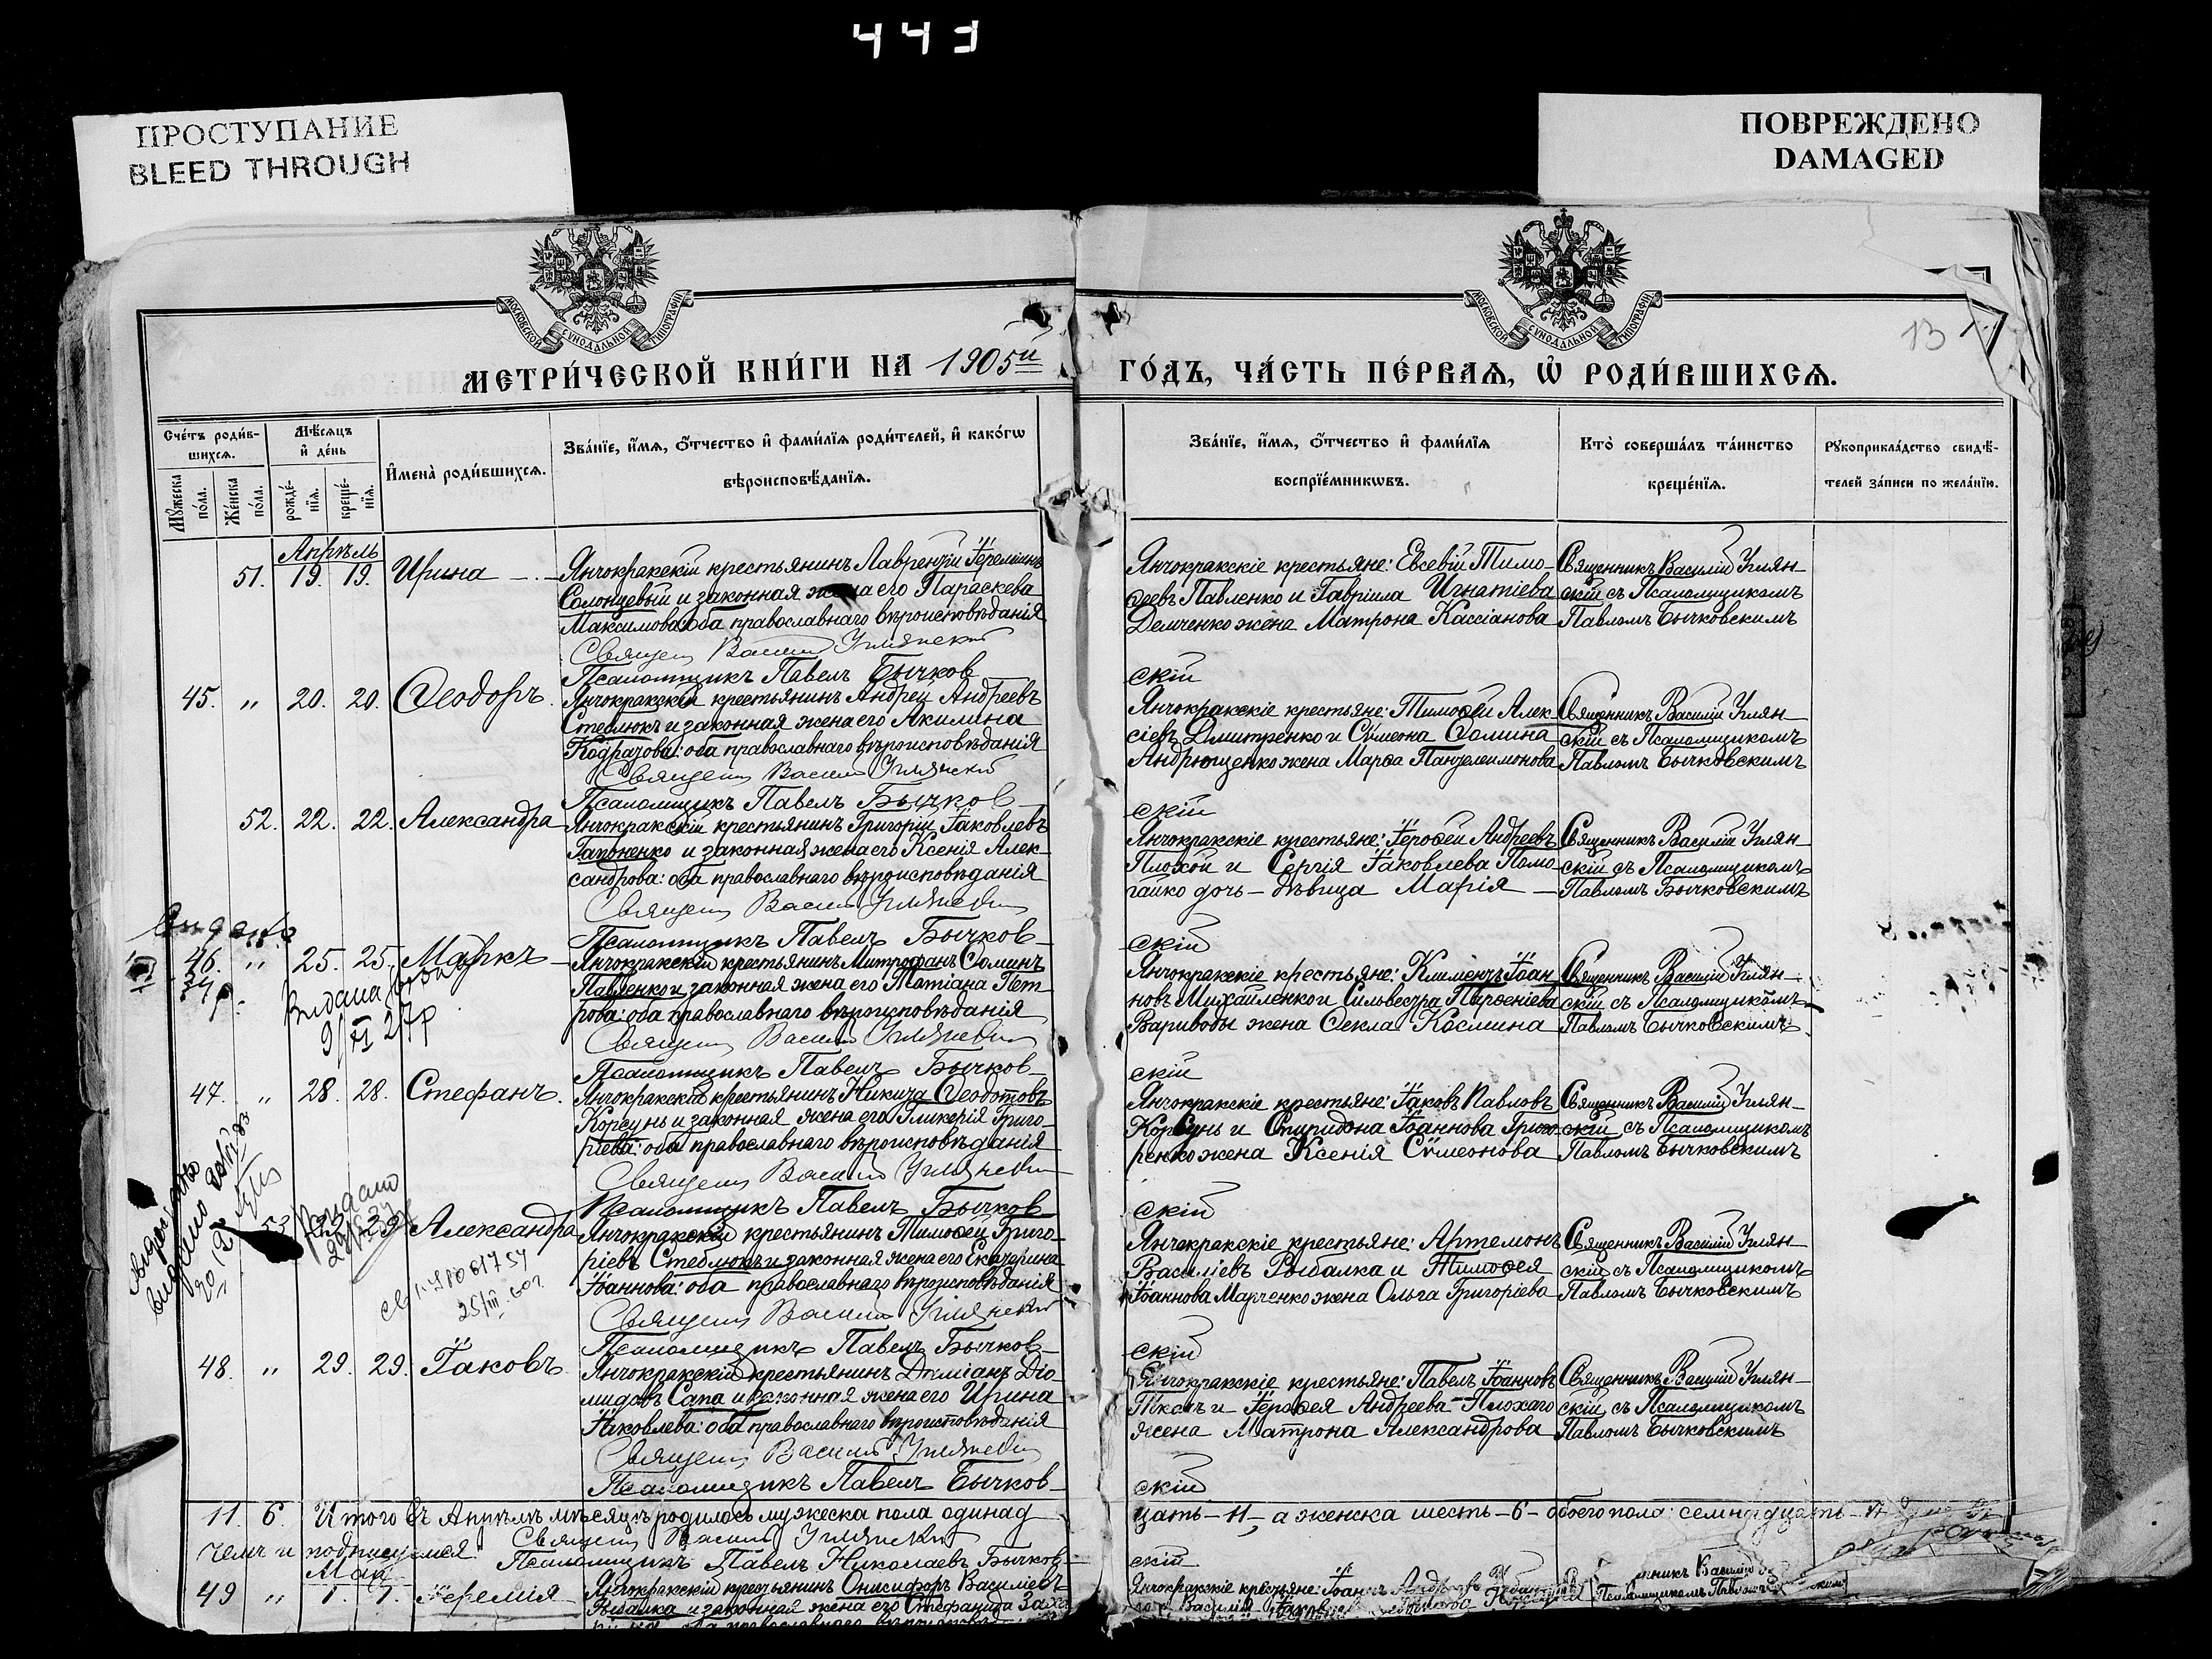 443
ПРОСТУПАНИЕ
BLEED THROUGH
ПОВРЕЖДЕНО
DAMAGED
МОСКОВСКОЙ СУНОДАЛЬНОЙ ТИПОГРАФІИ
МОСКОВСКОЙ СУНОДАЛЬНОЙ ТИПОГРАФІИ
13
МЕТРИ́ЧЕСКОЙ КНИ́ГИ НА 1905й ГО́ДЪ, ЧА́СТЬ ПЕ́РВАѦ, Ѡ РОДИ́ВШИХСѦ.
Сче́тъ роди́в-
шихсѧ.
Мꙋ́жеска по́ла.
Же́нска по́ла.
Мѣ́сѧцъ
и де́нь
рожде́-
нїѧ.
креще́-
нїѧ.
И҆мена̀ роди́вшихсѧ.
Зва́нїе, и҆́мѧ, ѻ҆́тчество и҆ фами́лїѧ роди́телей, и҆ како́гѡ
вѣроисповѣ́данїѧ.
Зва́нїе, и҆́мѧ, ѻ҆́тчество и҆ фами́лїѧ
воспрїе́мникѡвъ.
Кто̀ соверша́лъ та́инство
креще́нїѧ.
Рꙋкоприкла́дство свидѣ́-
телей за́писи по жела́нїю.
Апрѣль
51. 19. 19. Ирина
Янчокракскій крестьянинъ Лаврентій Іереміинъ
Солонцевый и законная жена его Параскева
Максимова: оба православнаго вѣроисповѣданія
Священ Василій Углянскій
Псаломщикъ Павелъ Бычков-
Янчокракскіе крестьяне: Евсевій Тимо-
ѳеевъ Павленко и Гавріила Игнатіева
Демченко жена Матрона Кассіанова
скій
Священникъ Василій Углян-
скій съ Псаломщикомъ
Павломъ Бычковскимъ
45. " 20. 20. Ѳеодоръ.
Янчокракскій крестьянинъ Андрей Андреевъ
Стеблюкъ и законная жена его Акилина
Кодратова: оба православнаго вѣроисповѣданія
Священ Василій Углянскій
Псаломщикъ Павелъ Бычков-
Янчокракскіе крестьяне: Тимоѳей Алек
сіевъ Дмитренко и Сѵмеона Ѳомина
Андрющенко жена Марѳа Пантелеимонова
скій
Священникъ Василій Углян-
скій съ Псаломщикомъ
Павломъ Бычковскимъ
52. 22. 22. Александра
Янчокракскій крестьянинъ Григорій Іаковлевъ
Гапоненко и законная жена его Ксенія Алек-
сандрова: оба православнаго вѣроисповѣданія
Священ Василій Углянскій
Псаломщикъ Павелъ Бычков-
Янчокракскіе крестьяне: Іероѳей Андреевъ
Плохой и Сергія Іаковлева Помо-
гайко дочь - дѣвица Марія
скій
Священникъ Василій Углян-
скій съ Псаломщикомъ
Павломъ Бычковскимъ
46. " 25. 25. Маркъ
Выдана
Янчокракскій крестьянинъ Митрофанъ Ѳоминъ
Павленко и законная жена его Татіана Пет-
рова: оба православнаго вѣроисповѣданія
Священ Василій Углянскій
Псаломщикъ Павелъ Бычков-
Янчокракскіе крестьяне: Климентъ Іоан
новъ Михайленко и Сильвестра Парѳеніева
Вариводы жена Ѳекла Космина
скій
Священникъ Василій Углян-
скій съ Псаломщикомъ
Павломъ Бычковскимъ
47. " 28. 28. Стефанъ.
Янчокракскій крестьянинъ Никита Ѳеодотовъ
Корсунь и законная жена его Гликерія Григо-
ріева: оба православнаго вѣроисповѣданія
Священ Василій Углянскій
Псаломщикъ Павелъ Бычков
Янчокракскіе крестьяне: Іаковъ Павловъ
Корсунь и Спиридона Іоаннова Григо-
ренко жена Ксенія Сѵмеонова
скій
Священникъ Василій Углян-
скій съ Псаломщикомъ
Павломъ Бычковскимъ
53. Александра
25/III 60г.
Янчокракскій крестьянинъ Тимоѳей Григо-
ріевъ Стеблюкъ и законная жена его Екатерина
Іоаннова: оба православнаго вѣроисповѣданія
Священ Василій Углянскій
Псаломщикъ Павелъ Бычков-
Янчокракскіе крестьяне: Артемонъ
Василіевъ Рыбалка и Тимоѳея
Іоаннова Марченко жена Ольга Григоріева
скій
Священникъ Василій Углян-
скій съ Псаломщикомъ
Павломъ Бычковскимъ
48. " 29. 29. Іаковъ
Янчокракскій крестьянинъ Даміанъ Діо-
мидовъ Сапа и законная жена его Ирина
Іаковлева: оба православнаго вѣроисповѣданія
Священ Василій Углянскій
Псаломщикъ Павелъ Бычков-
Янчокракскіе крестьяне: Павелъ Іоанновъ
Ткачъ и Іероѳея Андреева Плохаго
жена Матрона Александрова
скій
Священникъ Василій Углян-
скій съ Псаломщикомъ
Павломъ Бычковскимъ
11. 6. Итого въ Апрѣлѣ мѣсяцѣ родилось мужеска пола одинад
цать - 11 -, а женска шесть - 6 - обоего пола: семнадцать
чемъ и подписуемся: Священ Василій Углянскій
Псаломщикъ Павелъ Николаевъ Бычков-
скій
Май
49 " 1. 1. Іеремія
Янчокракскій крестьянинъ Онисифоръ Василіевъ
Рыбалка и законная жена его Стефанида Заха
Янчокракскіе крестьяне: Іоаннъ
Василія